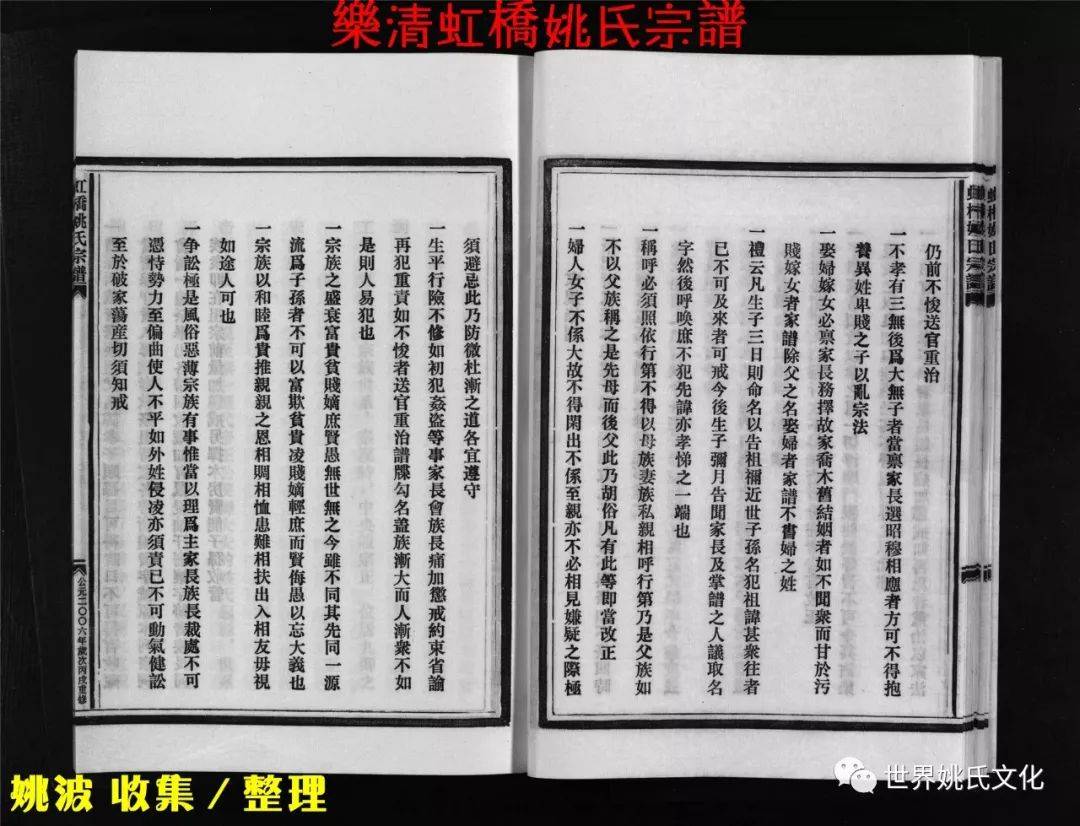 樂清虹橋姚氏宗譜
仍前不悛送官重治
一不孝有三無後爲大無子者當禀家長選昭穆相應者方可不得抱
養異姓卑賤之子以亂宗法
一娶婦嫁女必禀家長務擇故家喬木舊結姻者如不聞衆而甘於污
賤嫁女者家譜除父之名娶婦者家譜不書婦之姓
一禮云凡生子三日則命名以告祖禰近世子孫名犯祖諱甚衆往者
已不可及來者可戒今後生子彌月告聞家長及掌譜之人議取名
字然後呼喚庶不犯先諱亦孝悌之一端也
一稱呼必須照依行第不得以母族妻族私親相呼行第乃是父族如
不以父族稱之是先母而後父此乃胡俗凡有此等即當改正
一婦人女子不係大故不得閑出不係至親亦不必相見嫌疑之際極
須避忌此乃防微杜漸之道各宜遵守
一生平行險不修如初犯姦盜等事家長會族長痛加懲戒約束省諭
再犯重責如不悛者送官重治譜牒勾名蓋族漸大而人漸衆不如
是則人易犯也
一宗族之盛衰富貴貧賤嫡庶賢愚無世無之今雖不同其先同一源
流爲子孫者不可以富欺貧貴凌賤嫡輕庶而賢侮愚以忘大義也
一宗族以和睦爲貴推親親之恩相賙相恤患難相扶出入相友毋視
如途人可也
一争訟極是風俗惡薄宗族有事惟當以理爲主家長族長裁處不可
憑恃勢力至偏曲使人不平如外姓侵凌亦須責已不可動氣健訟
至於破家蕩産切須知戒
虹橋姚氏宗譜
公元二〇〇六年歲次丙戌重修
姚波 收集／整理
世界姚氏文化